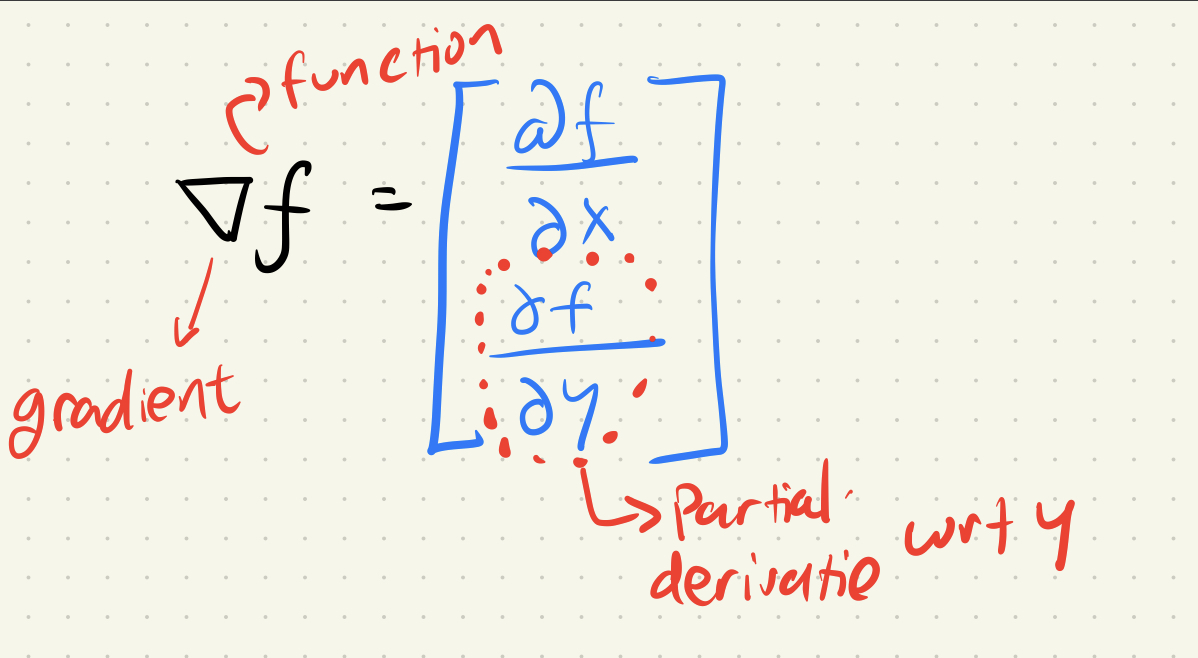 function
∇f =
∂f
∂x
∂f
∂y
gradient
Partial
derivatie wrt y